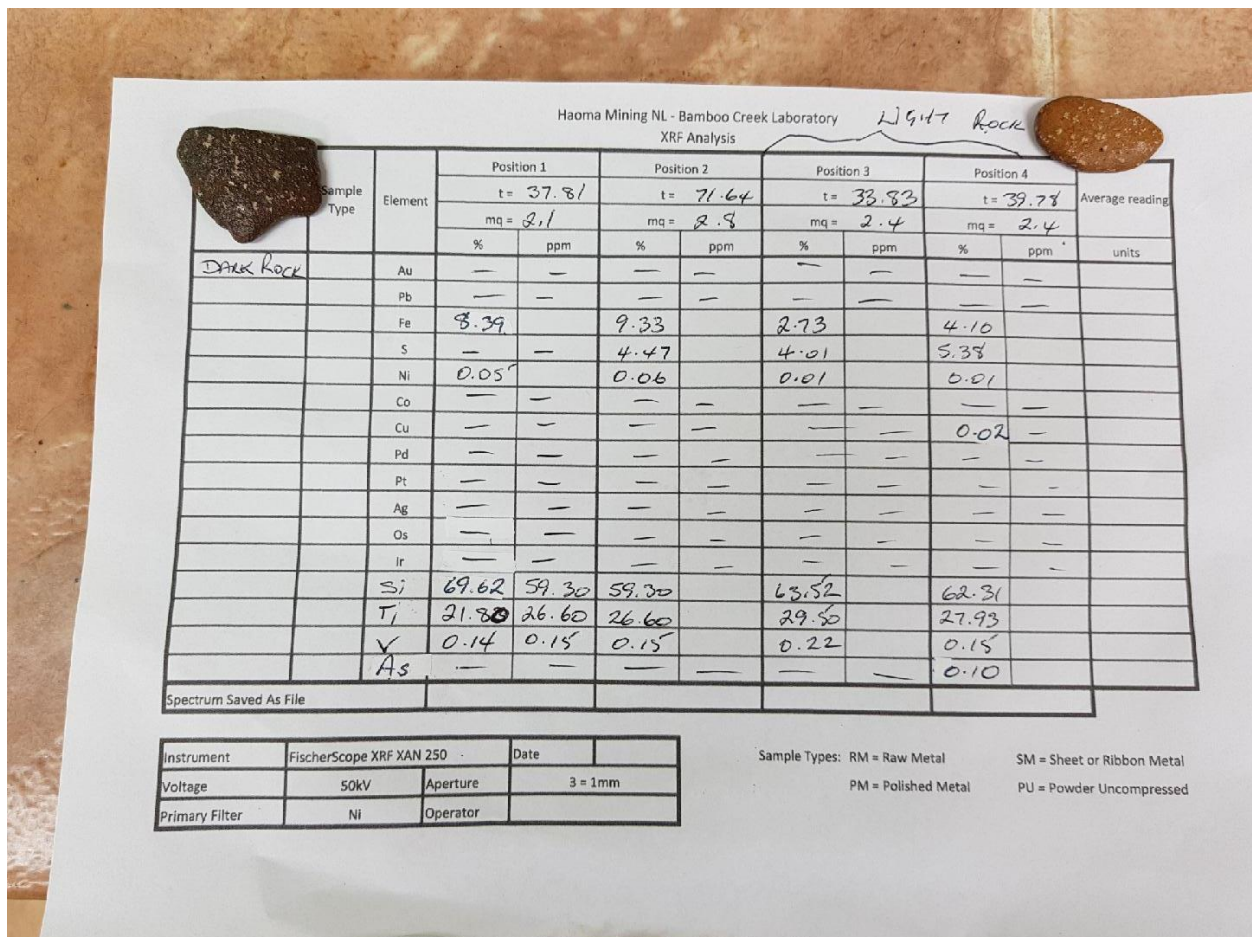 Haoma Mining NL - Bamboo Creek Laboratory LIGHT ROCK
XRF Analysis
Sample Type Element Position 1 Position 2 Position 3 Position 4 Average reading
t = 37.81 t = 71.64 t = 33.83 t = 39.78
mq = 2.1 mq = 2.8 mq = 2.4 mq = 2.4
% ppm % ppm % ppm % ppm units
DARK ROCK Au — — — — — — — —
Pb — — — — — — — —
Fe 8.39 9.33 2.73 4.10
S — — 4.47 4.01 5.38
Ni 0.05 0.06 0.01 0.01
Co — — — — — — — —
Cu — — — — — — 0.02 —
Pd — — — — — — — —
Pt — — — — — — — —
Ag — — — — — — — —
Os — — — — — — — —
Ir — — — — — — — —
Si 69.62 59.30 59.30 63.52 62.31
Ti 21.80 26.60 26.60 29.50 27.93
V 0.14 0.15 0.15 0.22 0.15
As — — — — — — 0.10
Spectrum Saved As File
Instrument FischerScope XRF XAN 250 Date
Voltage 50kV Aperture 3 = 1mm
Primary Filter Ni Operator
Sample Types: RM = Raw Metal SM = Sheet or Ribbon Metal
PM = Polished Metal PU = Powder Uncompressed